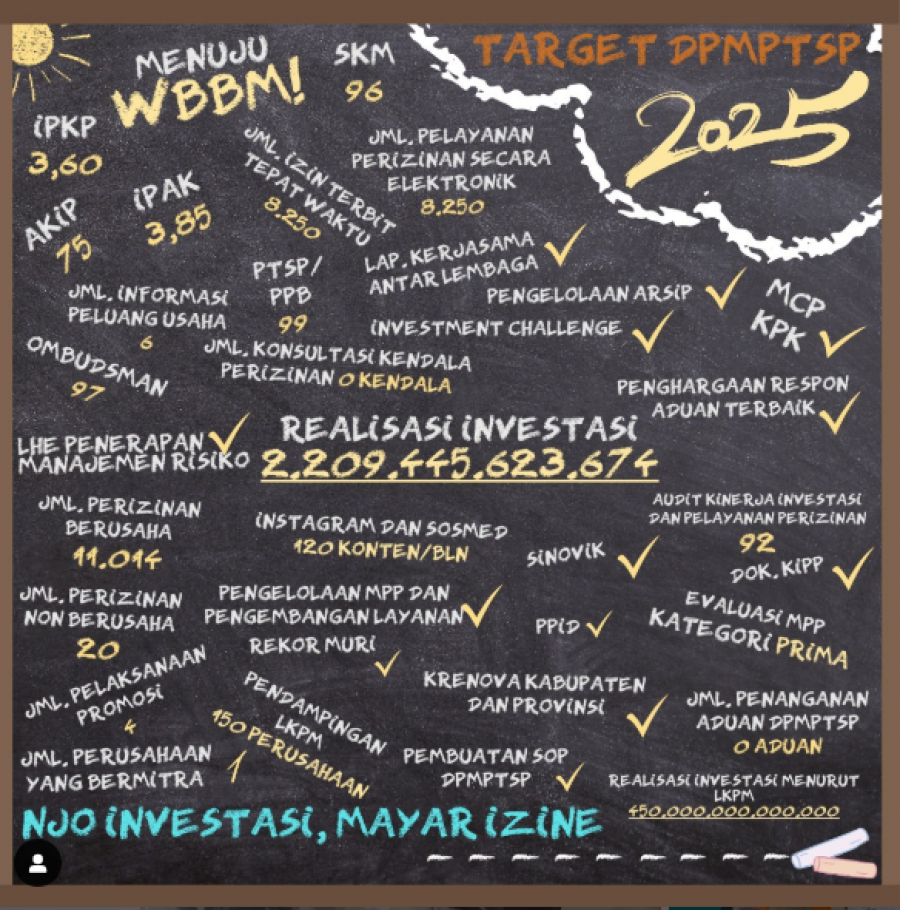 MENUJU
WBBM!
SKM
96
TARGET DPMPTSP
2025
iPKP
3,60
iPAK
3,85
AKiP
75
JML. iZiN TERBiT
TEPAT WAKTU
8.250
JML. PELAYANAN
PERiZiNAN SECARA
ELEKTRONiK
8.250
LAP. KERJASAMA
ANTAR LEMBAGA
PTSP/
PPB
99
PENGELOLAAN ARSiP
MCP
KPK
JML. iNFORMASi
PELUANG USAHA
6
iNVESTMENT CHALLENGE
OMBUDSMAN
97
JML. KONSULTASi KENDALA
PERiZiNAN 0 KENDALA
PENGHARGAAN RESPON
ADUAN TERBAiK
LHE PENERAPAN
MANAJEMEN RiSiKO
REALiSASi iNVESTASi
2.209.445.623.674
JML. PERiZiNAN
BERUSAHA
11.014
iNSTAGRAM DAN SOSMED
120 KONTEN/BLN
SiNOViK
AUDiT KiNERJA iNVESTASi
DAN PELAYANAN PERiZiNAN
92
DOK. KiPP
JML. PERiZiNAN
NON BERUSAHA
20
PENGELOLAAN MPP DAN
PENGEMBANGAN LAYANAN
REKOR MURi
PPiD
EVALUASi MPP
KATEGORi PRiMA
JML. PELAKSANAAN
PROMOSi
PENDAMPiNGAN
LKPM
150 PERUSAHAAN
KRENOVA KABUPATEN
DAN PROViNSi
JML. PENANGANAN
ADUAN DPMPTSP
0 ADUAN
JML. PERUSAHAAN
YANG BERMiTRA
1
PEMBUATAN SOP
DPMPTSP
REALiSASi iNVESTASi MENURUT
LKPM
450.000.000.000.000
NJO iNVESTASi, MAYAR iZiNE